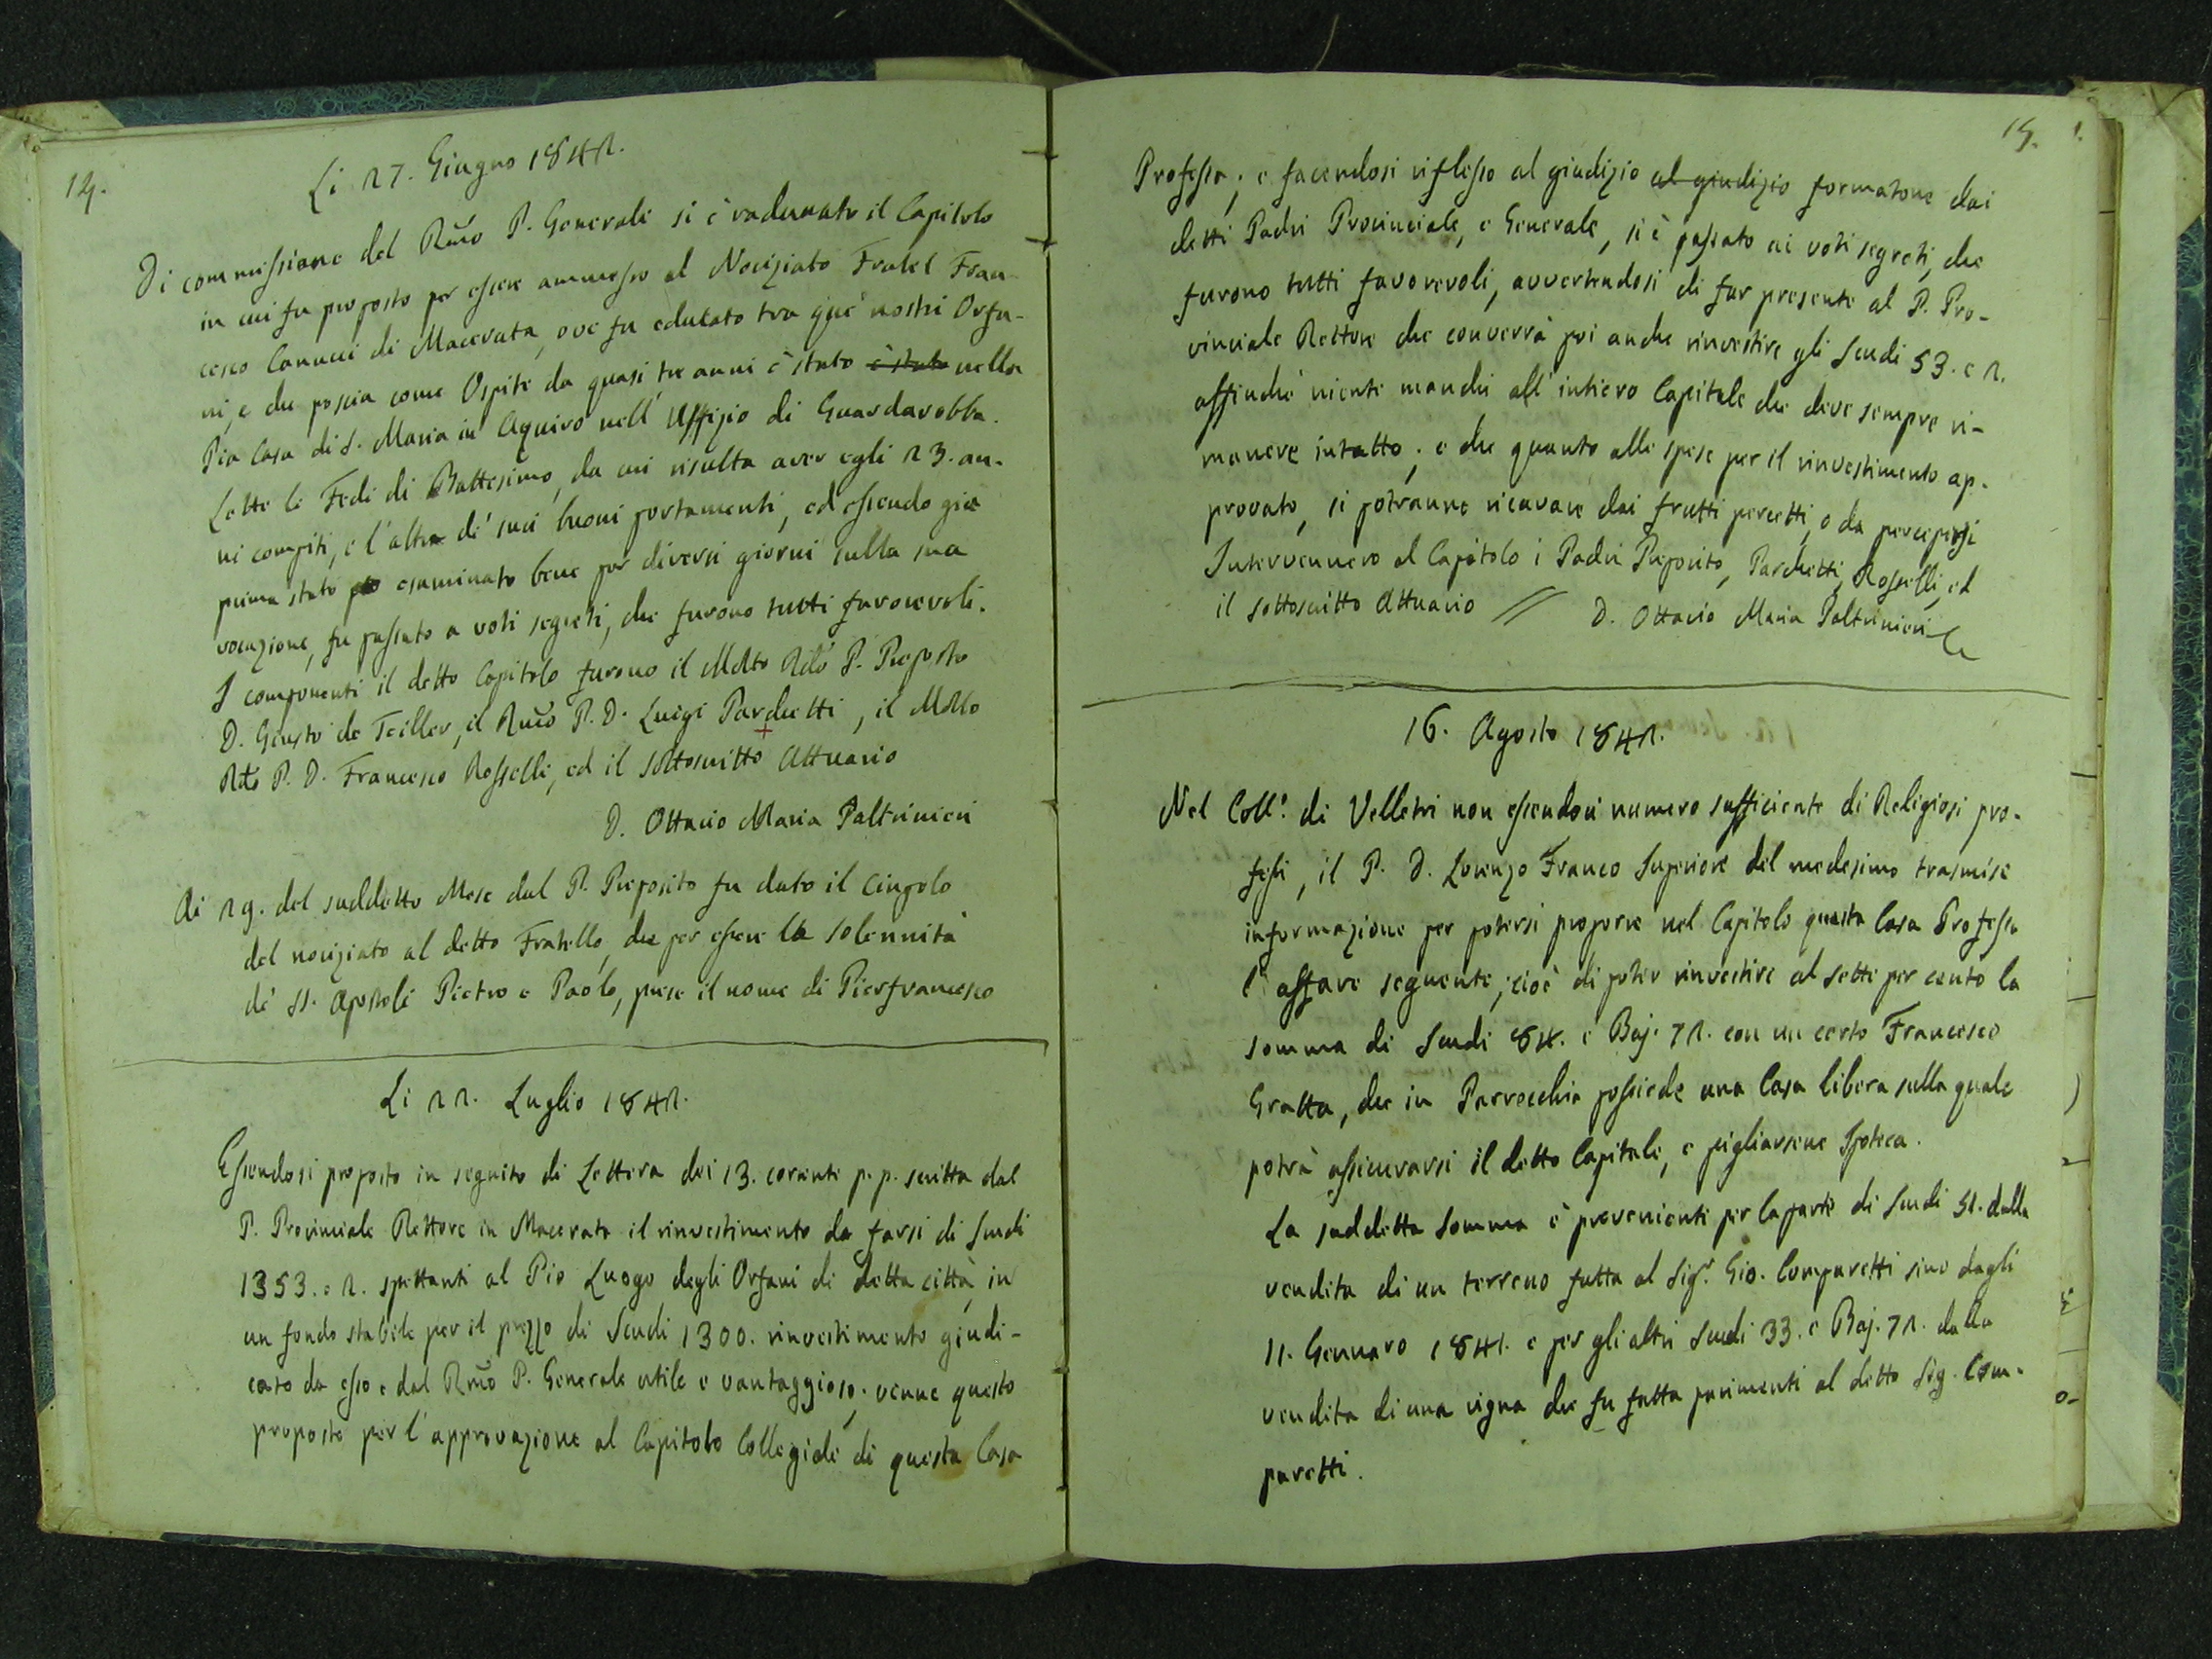 14.
Li 27. Giugno 1842.
Di commissione del Rmo P. Generale si è radunato il Capitolo
in cui fu proposto per essere ammesso al Noviziato Fratel Fran-
cesco Canucci di Macerata, ove fu educato tra que' nostri Orfa-
ni, e che poscia come Ospite da quasi tre anni è stato è stato nella
Pia Casa di S. Maria in Aquiro nell' Uffizio di Guardarobba.
Lette le Fedi di Battesimo, da cui risulta aver egli 23. an-
ni compiti, e l'altra de' suoi buoni portamenti, ed essendo già
prima stato esaminato bene per diversi giorni sulla sua
vocazione, fu passato a voti segreti, che furono tutti favorevoli.
I componenti il detto Capitolo furono il Molto Rdo P. Preposto
D. Giusto de Teiller, il Rmo P. D. Luigi Parchetti, il Molto
Rdo P. D. Francesco Rosselli, ed il sottoscritto Attuario
D. Ottavio Maria Paltrinieri
Ai 29. del suddetto Mese dal P. Preposito fu dato il Cingolo
del noviziato al detto Fratello, che per essere la solennità
de' SS. Apostoli Pietro e Paolo, prese il nome di Pierfrancesco
Li 22. Luglio 1842.
Essendosi proposto in seguito di Lettera dei 13. corrente p.p. scritta dal
P. Provinciale Rettore in Macerata il rinvestimento da farsi di Scudi
1353. e 2. spettanti al Pio Luogo degli Orfani di detta città in
un fondo stabile per il prezzo di Scudi 1300. rinvestimento giudi-
cato da esso e dal Rmo P. Generale utile e vantaggioso; venne questo
proposto per l'approvazione al Capitolo Collegiale di questa Casa
15.
Professa; e facendosi riflesso al giudizio al giudizio formatone dai
detti Padri Provinciale, e Generale, si è passato ai voti segreti, che
furono tutti favorevoli, avvertendosi di far presente al P. Pro-
vinciale Rettore che converrà poi anche rinvestire gli Scudi 53. e 2.
affinchè niente manchi all' intiero Capitale che deve sempre ri-
manere intatto; e che quanto alle spese per il rinvestimento ap-
provato, si potranno ricavare dai frutti percetti, o da percepirsi
Intervennero al Capitolo i Padri Preposito, Parchetti, Rosselli, ed
il sottoscritto Attuario // D. Ottavio Maria Paltrinieri
16. Agosto 1842.
Nel Coll.o di Velletri non essendovi numero sufficiente di Religiosi pro-
fessi, il P. D. Lorenzo Franco Superiore del medesimo trasmise
informazione per potersi proporre nel Capitolo questa Casa Professa
l' affare seguente; cioè di poter rinvestire al sette per cento la
somma di Scudi 84. e Baj. 72. con un certo Francesco
Gratta, che in Parrocchia possiede una Casa libera sulla quale
potrà assicurarsi il detto Capitale, e pigliarsene Ipoteca.
La suddetta Somma è proveniente per la parte di Scudi 51. dalla
vendita di un terreno fatta al Sig.r Gio. Comparetti sino dagli
11. Gennaro 1841. e per gli altri Scudi 33. e Baj. 72. dalla
vendita di una vigna che fu fatta parimenti al detto Sig. Com-
paretti.